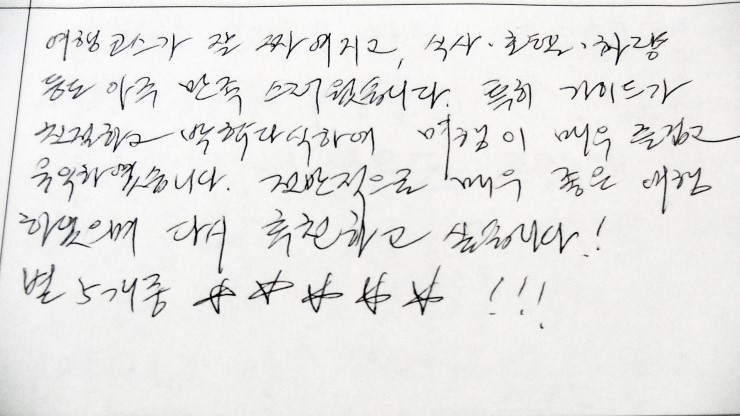 여행 코스가 잘 짜여지고, 식사·호텔·차량
등도 아주 만족 스러웠습니다. 특히 가이드가
친절하고 박학다식하여 여행이 매우 즐겁고
유익하였습니다. 전반적으로 매우 좋은 여행
하였으며 다시 추천하고 싶습니다!
별 5개중 ☆☆☆☆☆ !!!